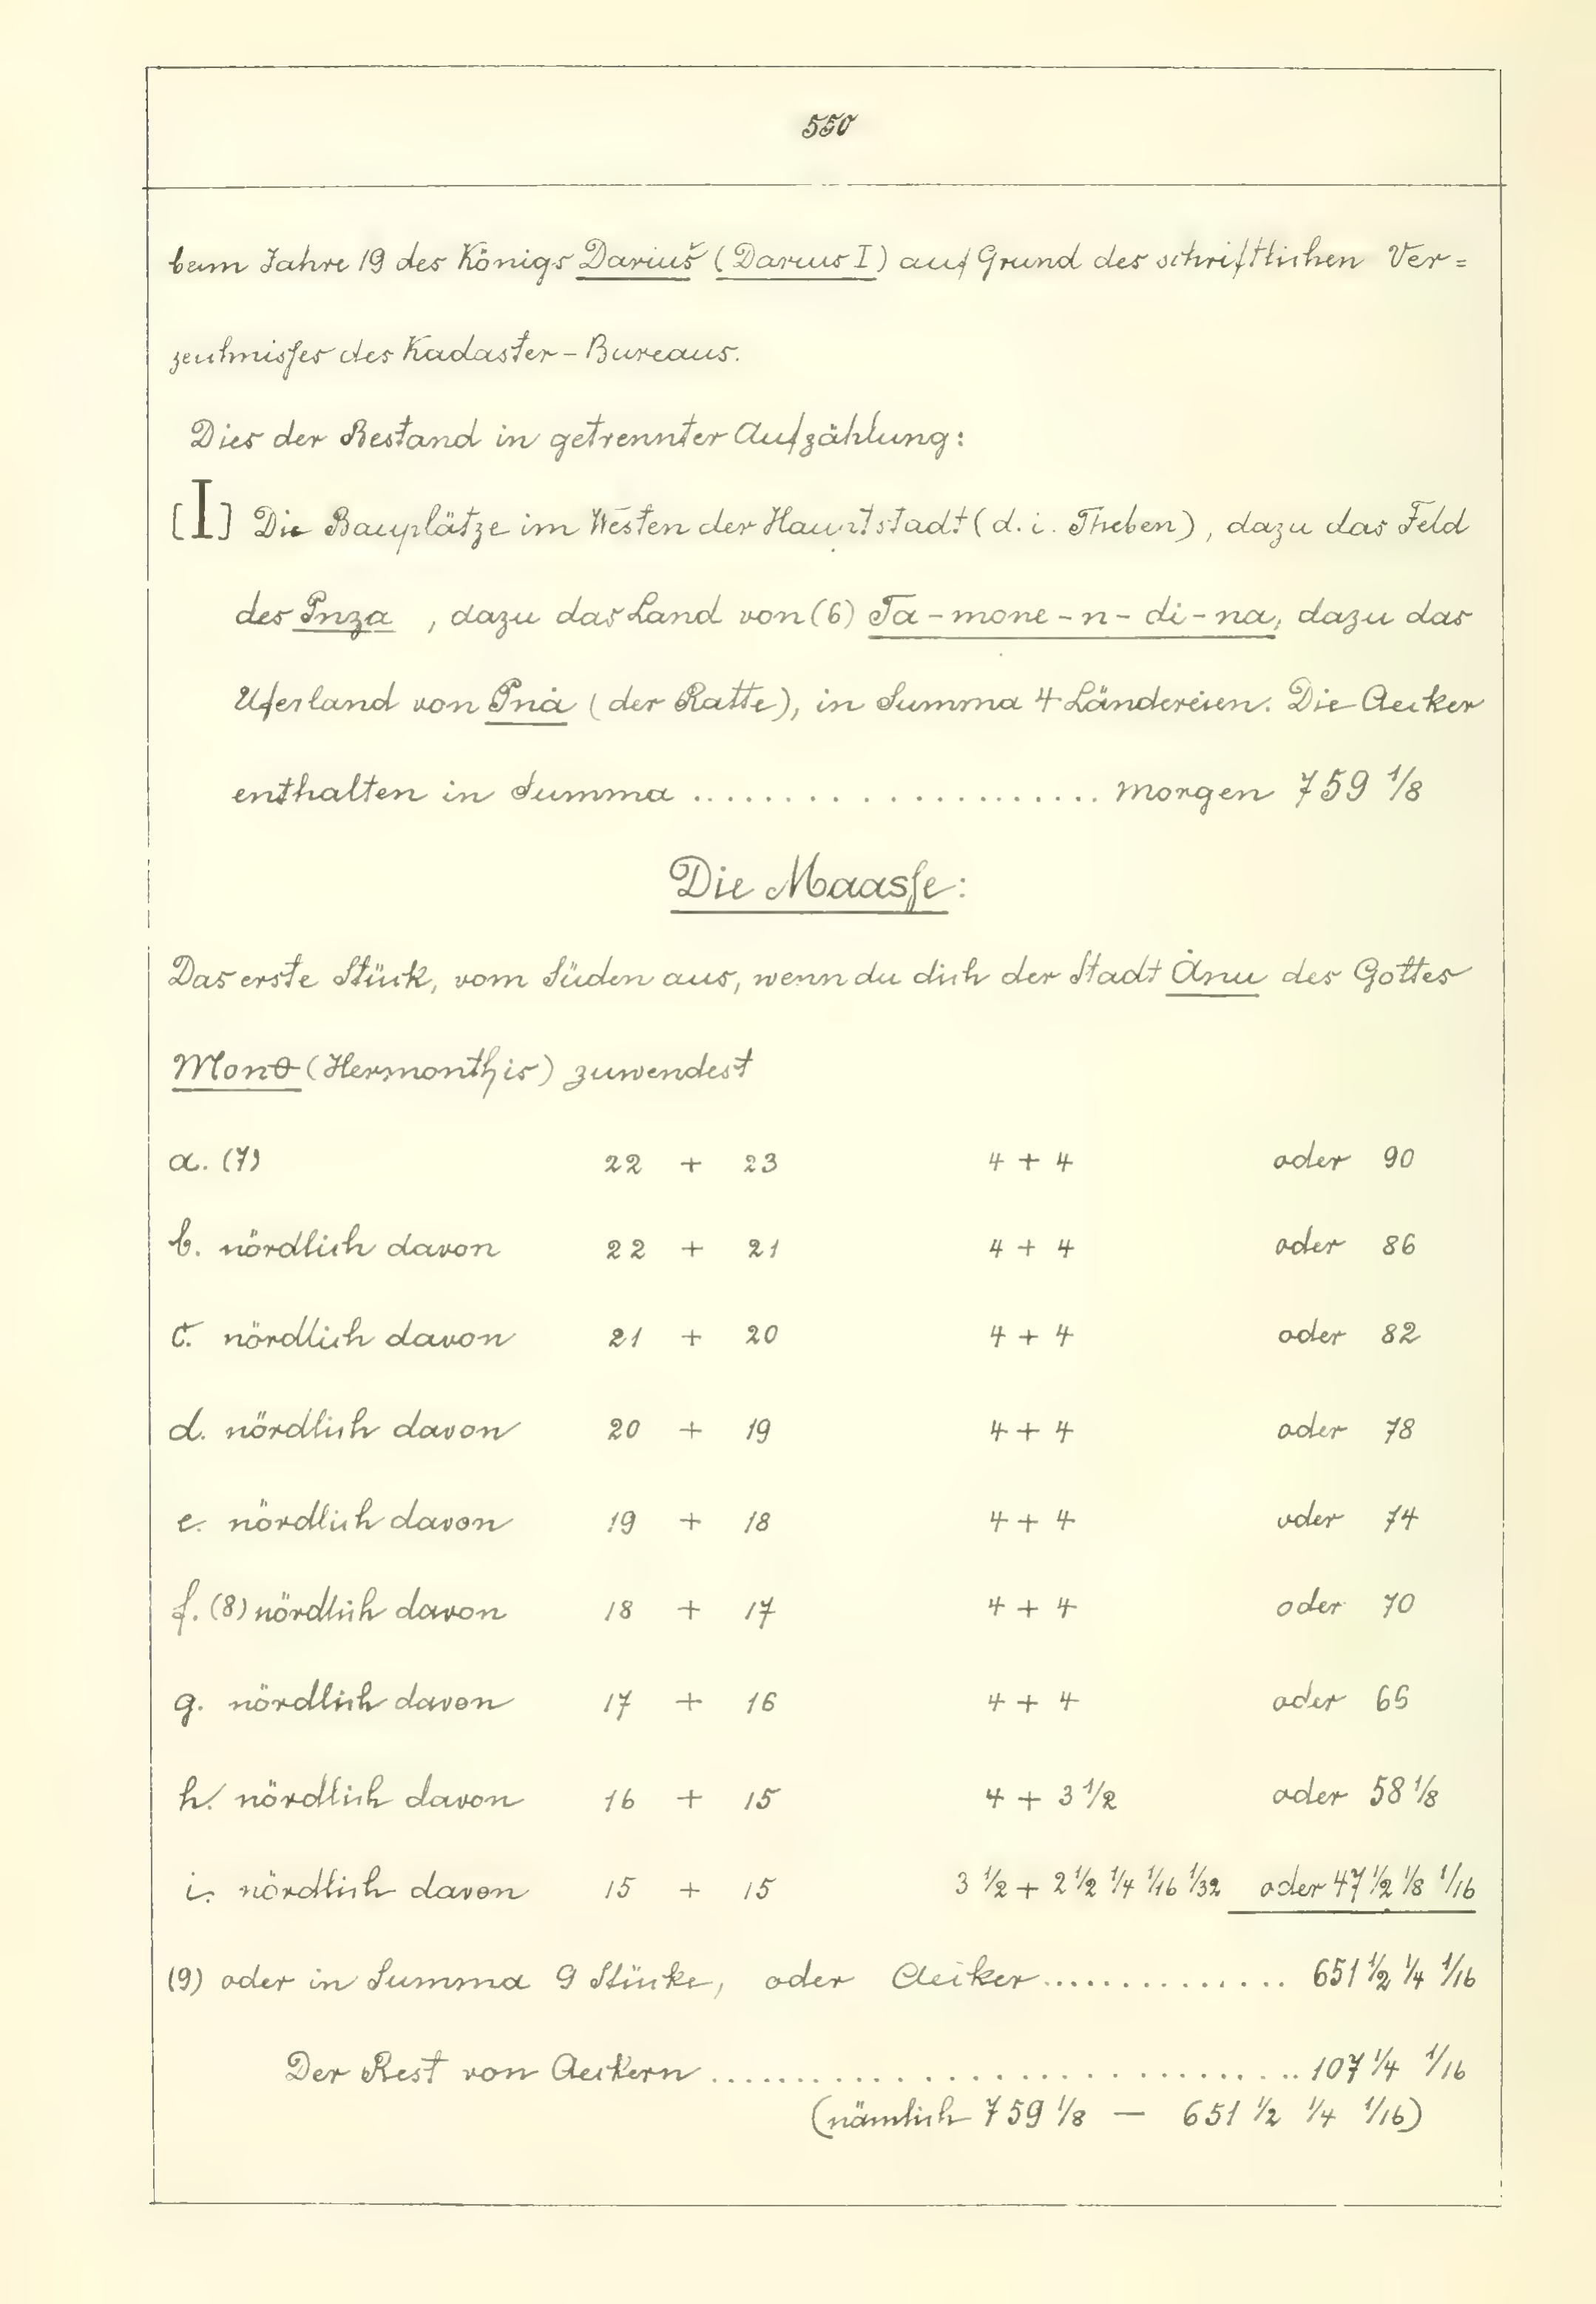 550
beim Jahre 19 des Königs Dariuš (Darius I) auf Grund des schriftlichen Ver=
zeichnisses des Kadaster-Bureaus.
Dies der Bestand in getrennter Aufzählung:
[I] Die Bauplätze im Westen der Hauptstadt (d. i. Theben), dazu das Feld
des Pnza , dazu das Land von (6) Ta-mone-n-di-na, dazu das
Uferland von Pnȧ (der Ratte), in Summa 4 Ländereien. Die Aecker
enthalten in Summa ....................... Morgen 759 1/8
Die Maasse:
Das erste Stück, vom Süden aus, wenn du dich der Stadt Ȧnu des Gottes
Monθ (Hermonthis) zuwendest
a. (7) 22 + 23 4 + 4 oder 90
b. nördlich davon 22 + 21 4 + 4 oder 86
c. nördlich davon 21 + 20 4 + 4 oder 82
d. nördlich davon 20 + 19 4 + 4 oder 78
e. nördlich davon 19 + 18 4 + 4 oder 74
f. (8) nördlich davon 18 + 17 4 + 4 oder 70
g. nördlich davon 17 + 16 4 + 4 oder 66
h. nördlich davon 16 + 15 4 + 3 1/2 oder 58 1/8
i. nördlich davon 15 + 15 3 1/2 + 2 1/2 1/4 1/16 1/32 oder 47 1/2 1/8 1/16
(9) oder in Summa 9 Stücke, oder Aecker .............. 651 1/2 1/4 1/16
Der Rest von Aeckern .............................. 107 1/4 1/16
(nämlich 759 1/8 — 651 1/2 1/4 1/16)